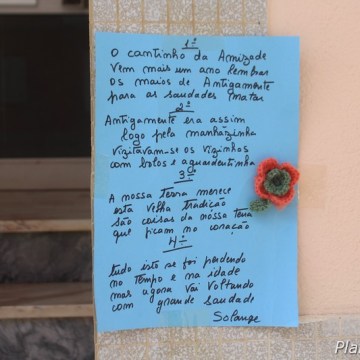 1ª
O cantinho da Amizade
Vem mais um ano lembrar
Os maios de Antigamente
para as saudades matar
2ª
Antigamente era assim
logo pela manhãzinha
Vizitavam-se os vizinhos
com bolos e aguardentinha
3ª
A nossa terra merece
esta velha tradição
são coisas da nossa terra
que ficam no coração
4ª
tudo isto se foi perdendo
no tempo e na idade
mas agora vai voltando
com grande saudade
Solange
Pla